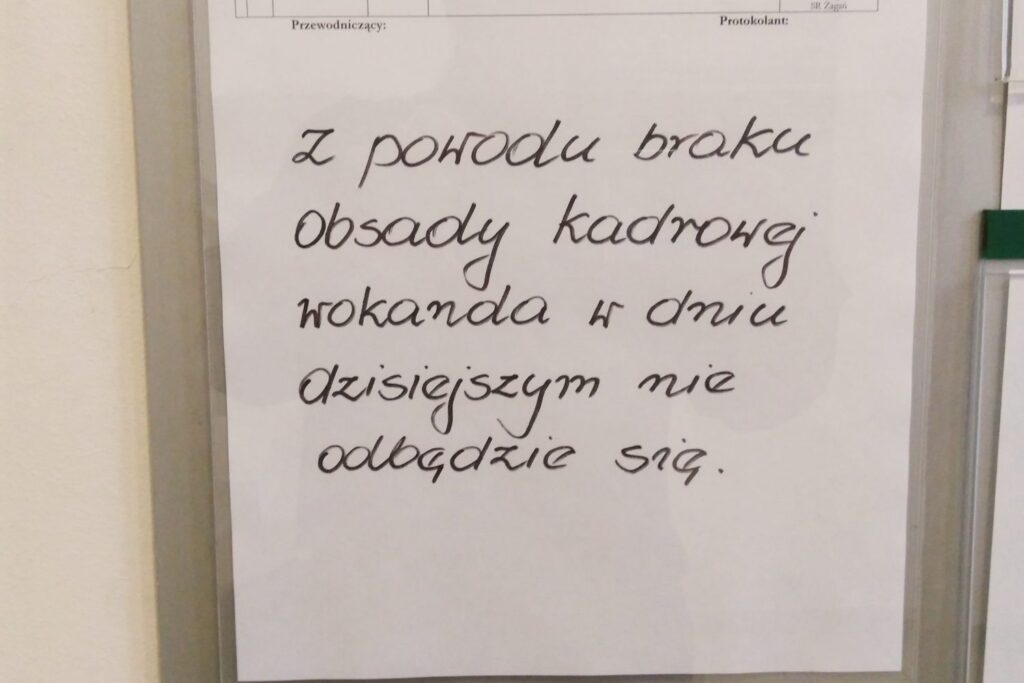 SR Żagań
Przewodniczący: Protokolant:
Z powodu braku
obsady kadrowej
wokanda w dniu
dzisiejszym nie
odbędzie się.